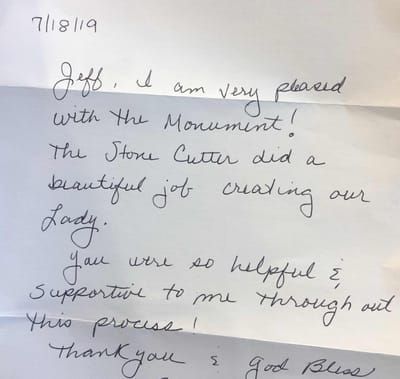 7/18/19
Jeff, I am very pleased
with the Monument!
The Stone Cutter did a
beautiful job creating our
Lady.
You were so helpful &
supportive to me through out
this process!
Thank you & God Bless